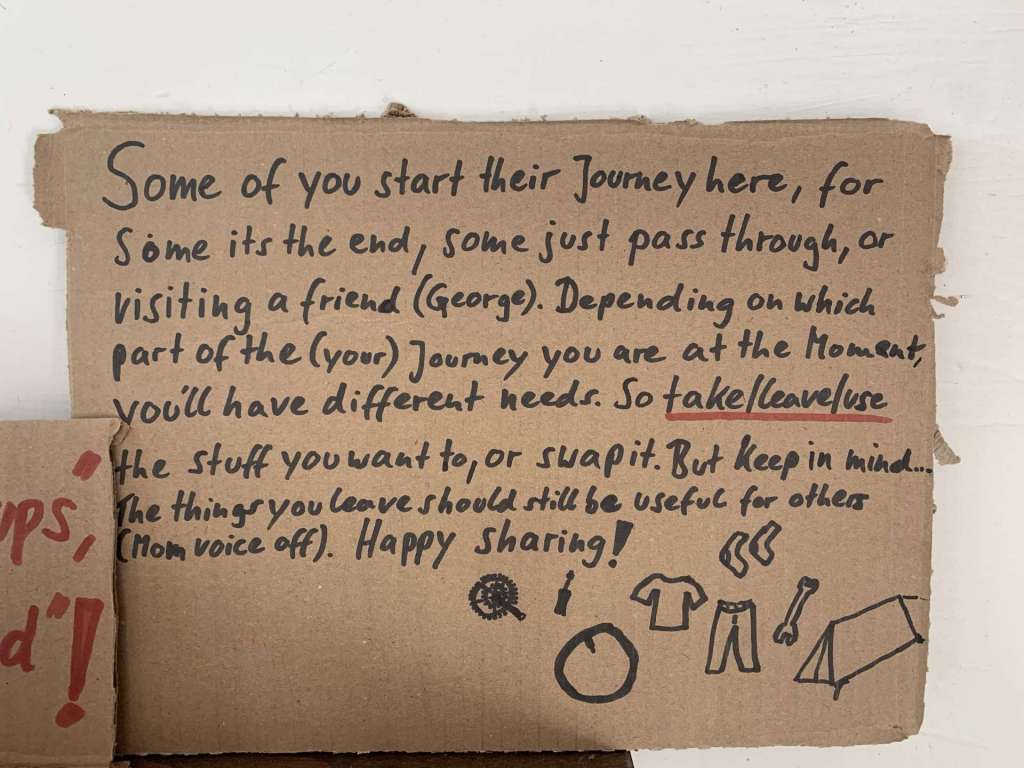 Some of you start their Journey here, for
some its the end, some just pass through, or
visiting a friend (George). Depending on which
part of the (your) Journey you are at the Moment,
you'll have different needs. So take/leave/use
the stuff you want to, or swap it. But keep in mind...
The things you leave should still be useful for others
(Mom voice off). Happy sharing!
ups,"
d"!